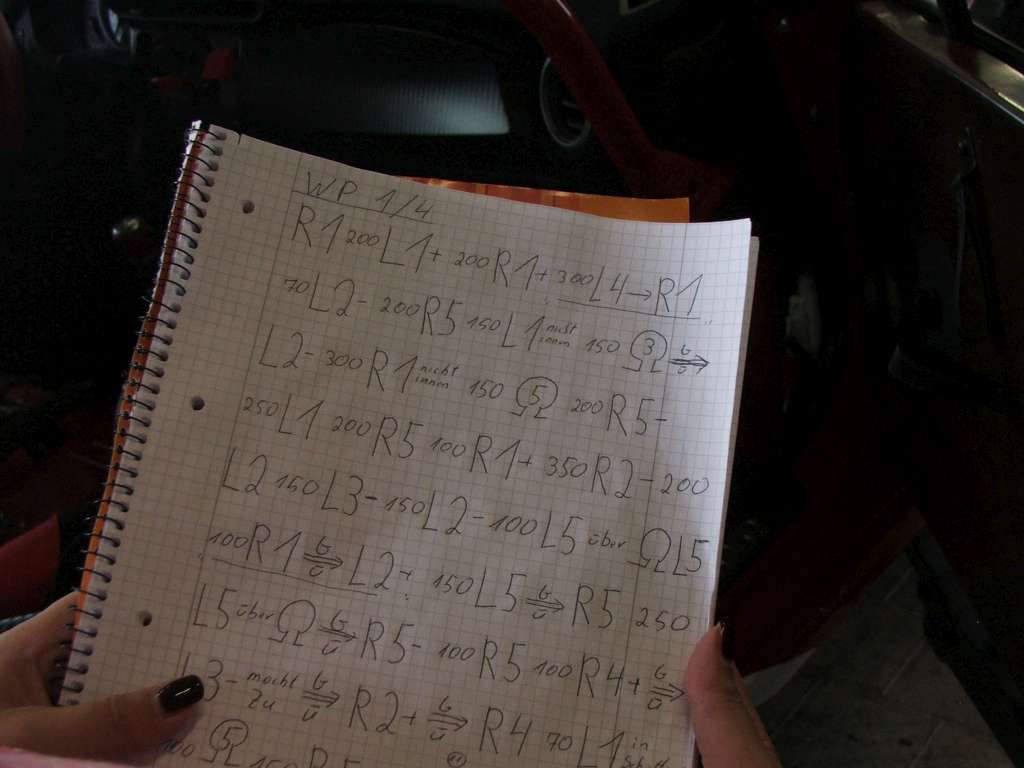 WP 1/4
R1 200 L1+ 200 R1+ 300 L4→R1
70 L2- 200 R5 150 L1 nicht innen 150 Ω3 G⇒ü
L2- 300 R1 nicht innen 150 Ω5 200 R5-
250 L1 200 R5 100 R1+ 350 R2- 200
L2 150 L3- 150 L2- 100 L5 über Ω L5
100 R1 G⇒ü L2+ 150 L5 G⇒ü R5 250
L5 über Ω G⇒ü R5- 100 R5 100 R4+ G⇒ü
L3- macht zu G⇒ü R2+ G⇒ü R4 70 L1 in
100 Ω5 150 R5